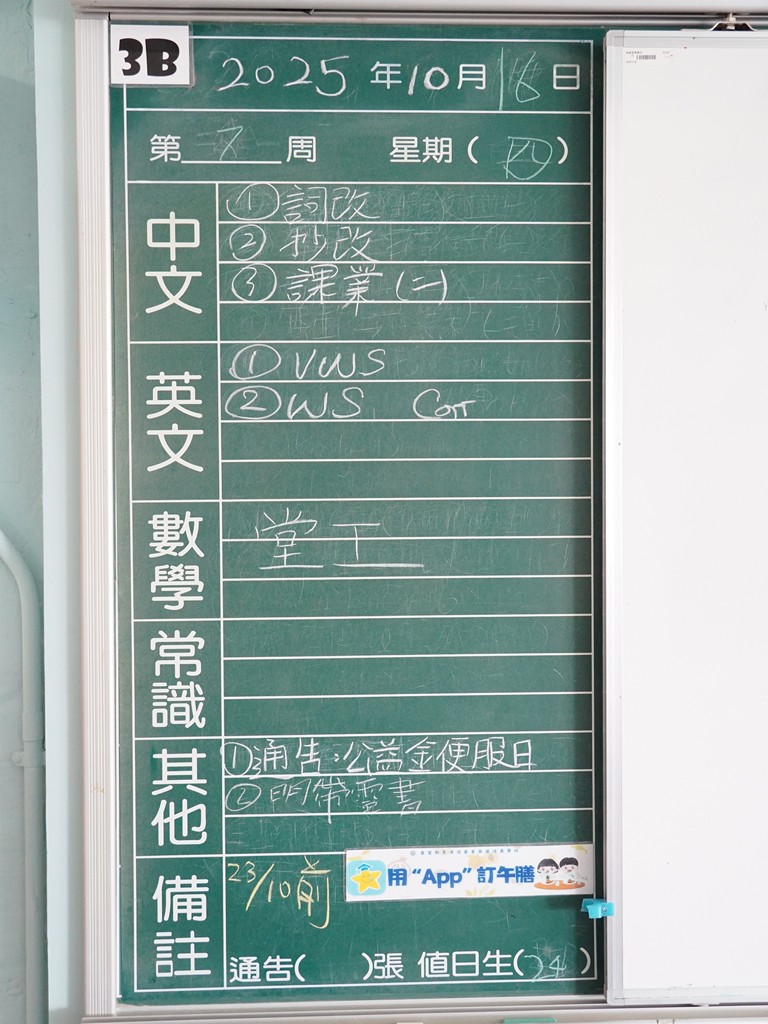 3B
2025年10月16日
第7周 星期(四)
中文
①詞改
②抄改
③課業(二)
英文
①VWS
②WS Corr
數學
堂工
常識
其他
①通告:公益金便服日
②明帶靈書
備註
23/10前
用“App”訂午膳
通告( )張 值日生(24)